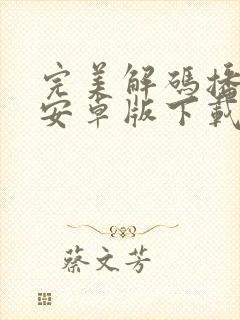 完美解碼播
安卓版下載
蔡文芳